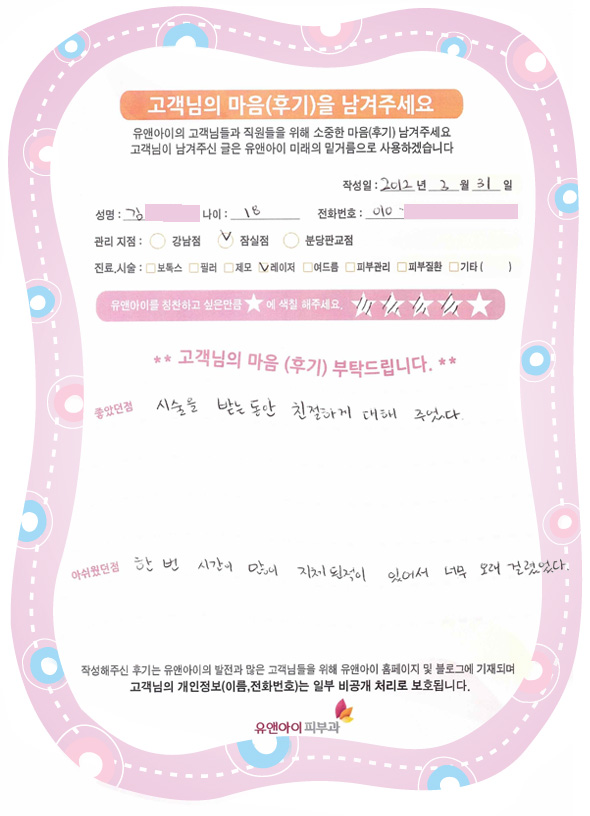 고객님의 마음(후기)을 남겨주세요
유앤아이의 고객님들과 직원들을 위해 소중한 마음(후기) 남겨주세요
고객님이 남겨주신 글은 유앤아이 미래의 밑거름으로 사용하겠습니다
작성일 : 2012 년 3 월 31 일
성명 : 김 나이 : 18 전화번호 : 010 -
관리 지점 : 강남점 잠실점 분당판교점
진료,시술 : 보톡스 필러 제모 레이저 여드름 피부관리 피부질환 기타 ( )
유앤아이를 칭찬하고 싶은만큼 ★ 에 색칠 해주세요. ★★★★★
** 고객님의 마음 (후기) 부탁드립니다. **
좋았던점 시술을 받는동안 친절하게 대해 주었다.
아쉬웠던점 한 번 시간이 많이 지체된적이 있어서 너무 오래 걸렸었다.
작성해주신 후기는 유앤아이의 발전과 많은 고객님들을 위해 유앤아이 홈페이지 및 블로그에 기재되며
고객님의 개인정보(이름,전화번호)는 일부 비공개 처리로 보호됩니다.
유앤아이 피부과